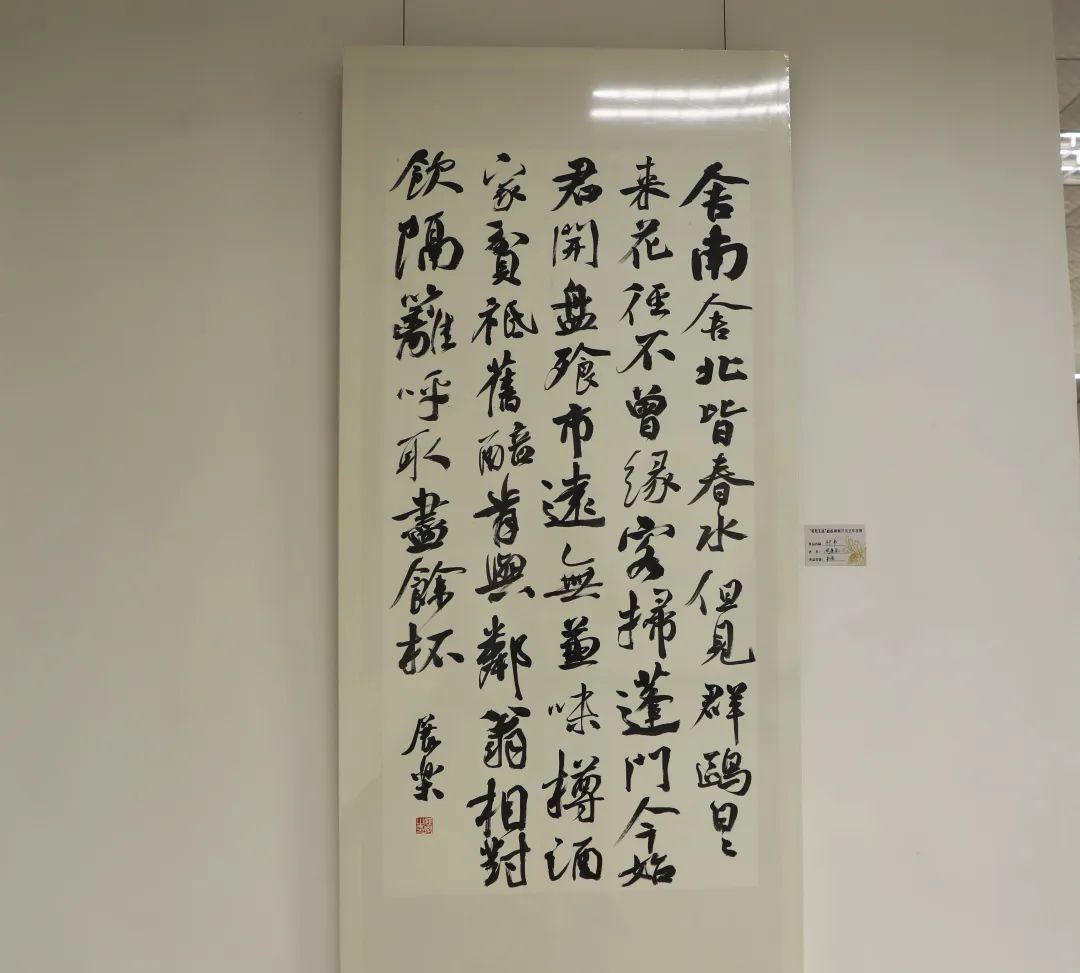 舍南舍北皆春水但見群鷗日〻
来花径不曾缘客掃蓬門今始
君開盘飱市遠無兼味樽酒
家貧袛舊醅肯與鄰翁相對
飲隔籬呼取盡餘杯
展樂